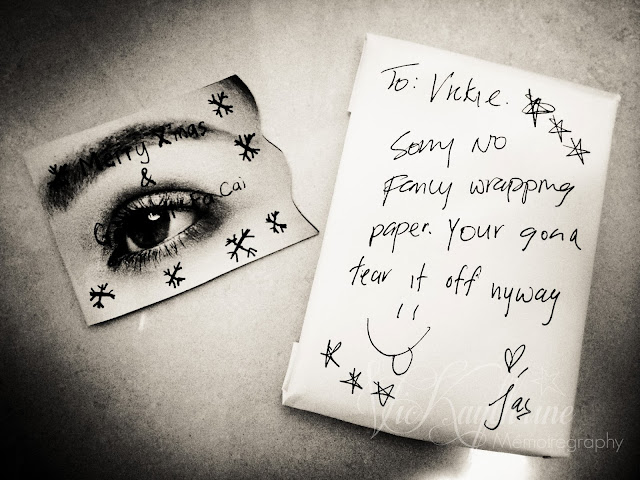 Merry X'mas
&
Cai
To: Vickie.
Sorry No
Fancy wrapping
paper. Your gona
tear it off nyway
Jas
Memoiregraphy